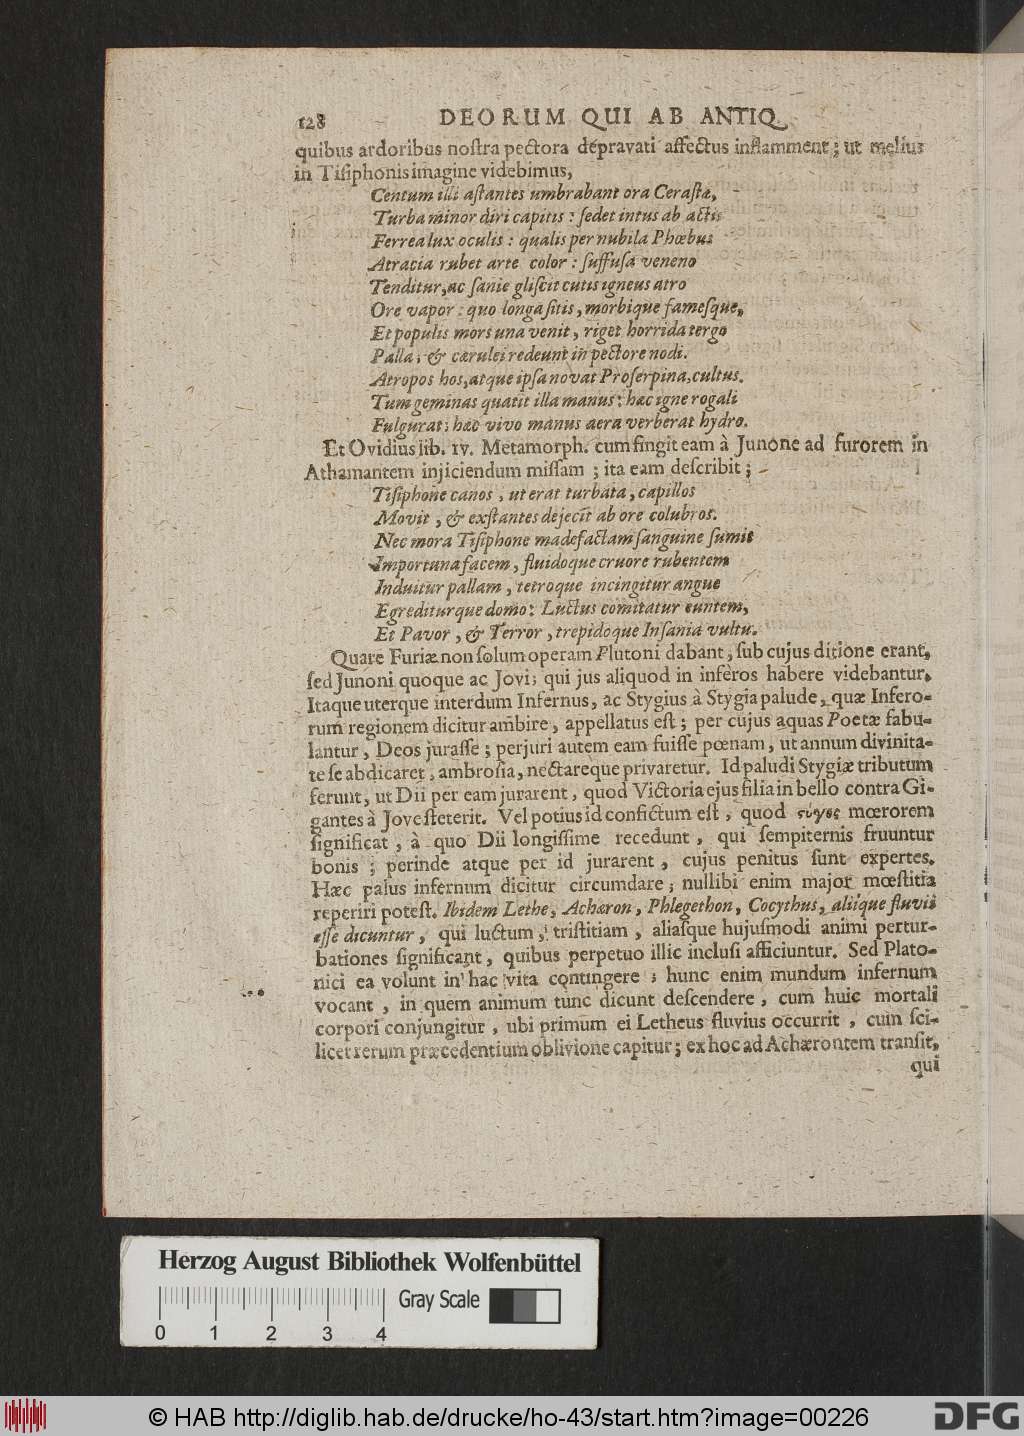 128 DEORUM QUI AB ANTIQ.
quibus ardoribus noſtra pectora depravati affectus inflamment; ut melius
in Tiſiphonis imagine videbimus,
Centum illi aſtantes umbrabant ora Ceraſtæ,
Turba minor diri capitis: ſedet intus ab actis
Ferrea lux oculis: qualis per nubila Phœbus
Atracia rubet arte color: ſuffuſa veneno
Tenditur, ac ſanie gliſcit cutis igneus atro
Ore vapor: quo longa ſitis, morbique fameſque,
Et populis mors una venit, riget horrida tergo
Palla; & cærulei redeunt in pectore nodi.
Atropos hos, atque ipſa novat Proſerpina, cultus.
Tum geminas quatit illa manus: hæc igne rogali
Fulgurat; hæc vivo manus aera verberat hydro.
Et Ovidius lib. IV. Metamorph. cum fingit eam à Junone ad furorem in
Athamantem injiciendum miſſam; ita eam deſcribit;
Tiſiphone canos, ut erat turbata, capillos
Movit, & exſtantes dejecit ab ore colubros.
Nec mora Tiſiphone madefactam ſanguine ſumit
Importuna facem, fluidoque cruore rubentem
Induitur pallam, tetroque incingitur angue
Egrediturque domo: Luctus comitatur euntem,
Et Pavor, & Terror, trepidoque Inſania vultu.
Quare Furiæ non ſolum operam Plutoni dabant, ſub cujus ditione erant,
ſed Junoni quoque ac Jovi; qui jus aliquod in inferos habere videbantur.
Itaque uterque interdum Infernus, ac Stygius à Stygia palude, quæ Infero-
rum regionem dicitur ambire, appellatus eſt; per cujus aquas Poetæ fabu-
lantur, Deos juraſſe; perjuri autem eam fuiſſe pœnam, ut annum divinita-
te ſe abdicaret, ambroſia, nectareque privaretur. Id paludi Stygiæ tributum
ferunt, ut Dii per eam jurarent, quod Victoria ejus filia in bello contra Gi-
gantes à Jove ſteterit. Vel potius id confictum eſt, quod ςύγος mœrorem
ſignificat, à quo Dii longiſſime recedunt, qui ſempiternis fruuntur
bonis; perinde atque per id jurarent, cujus penitus ſunt expertes.
Hæc palus infernum dicitur circumdare; nullibi enim major mœſtitia
reperiri poteſt. Ibidem Lethe, Achæron, Phlegethon, Cocythus, aliique fluvii
eſſe dicuntur, qui luctum, triſtitiam, aliaſque hujuſmodi animi pertur-
bationes ſignificant, quibus perpetuo illic incluſi afficiuntur. Sed Plato-
nici ea volunt in hac vita contingere; hunc enim mundum infernum
vocant, in quem animum tunc dicunt deſcendere, cum huic mortali
corpori conjungitur, ubi primum ei Letheus fluvius occurrit, cum ſci-
licet rerum præcedentium oblivione capitur; ex hoc ad Achærontem tranſit,
qui
Herzog August Bibliothek Wolfenbüttel
Gray Scale
0 1 2 3 4
© HAB http://diglib.hab.de/drucke/ho-43/start.htm?image=00226
DFG